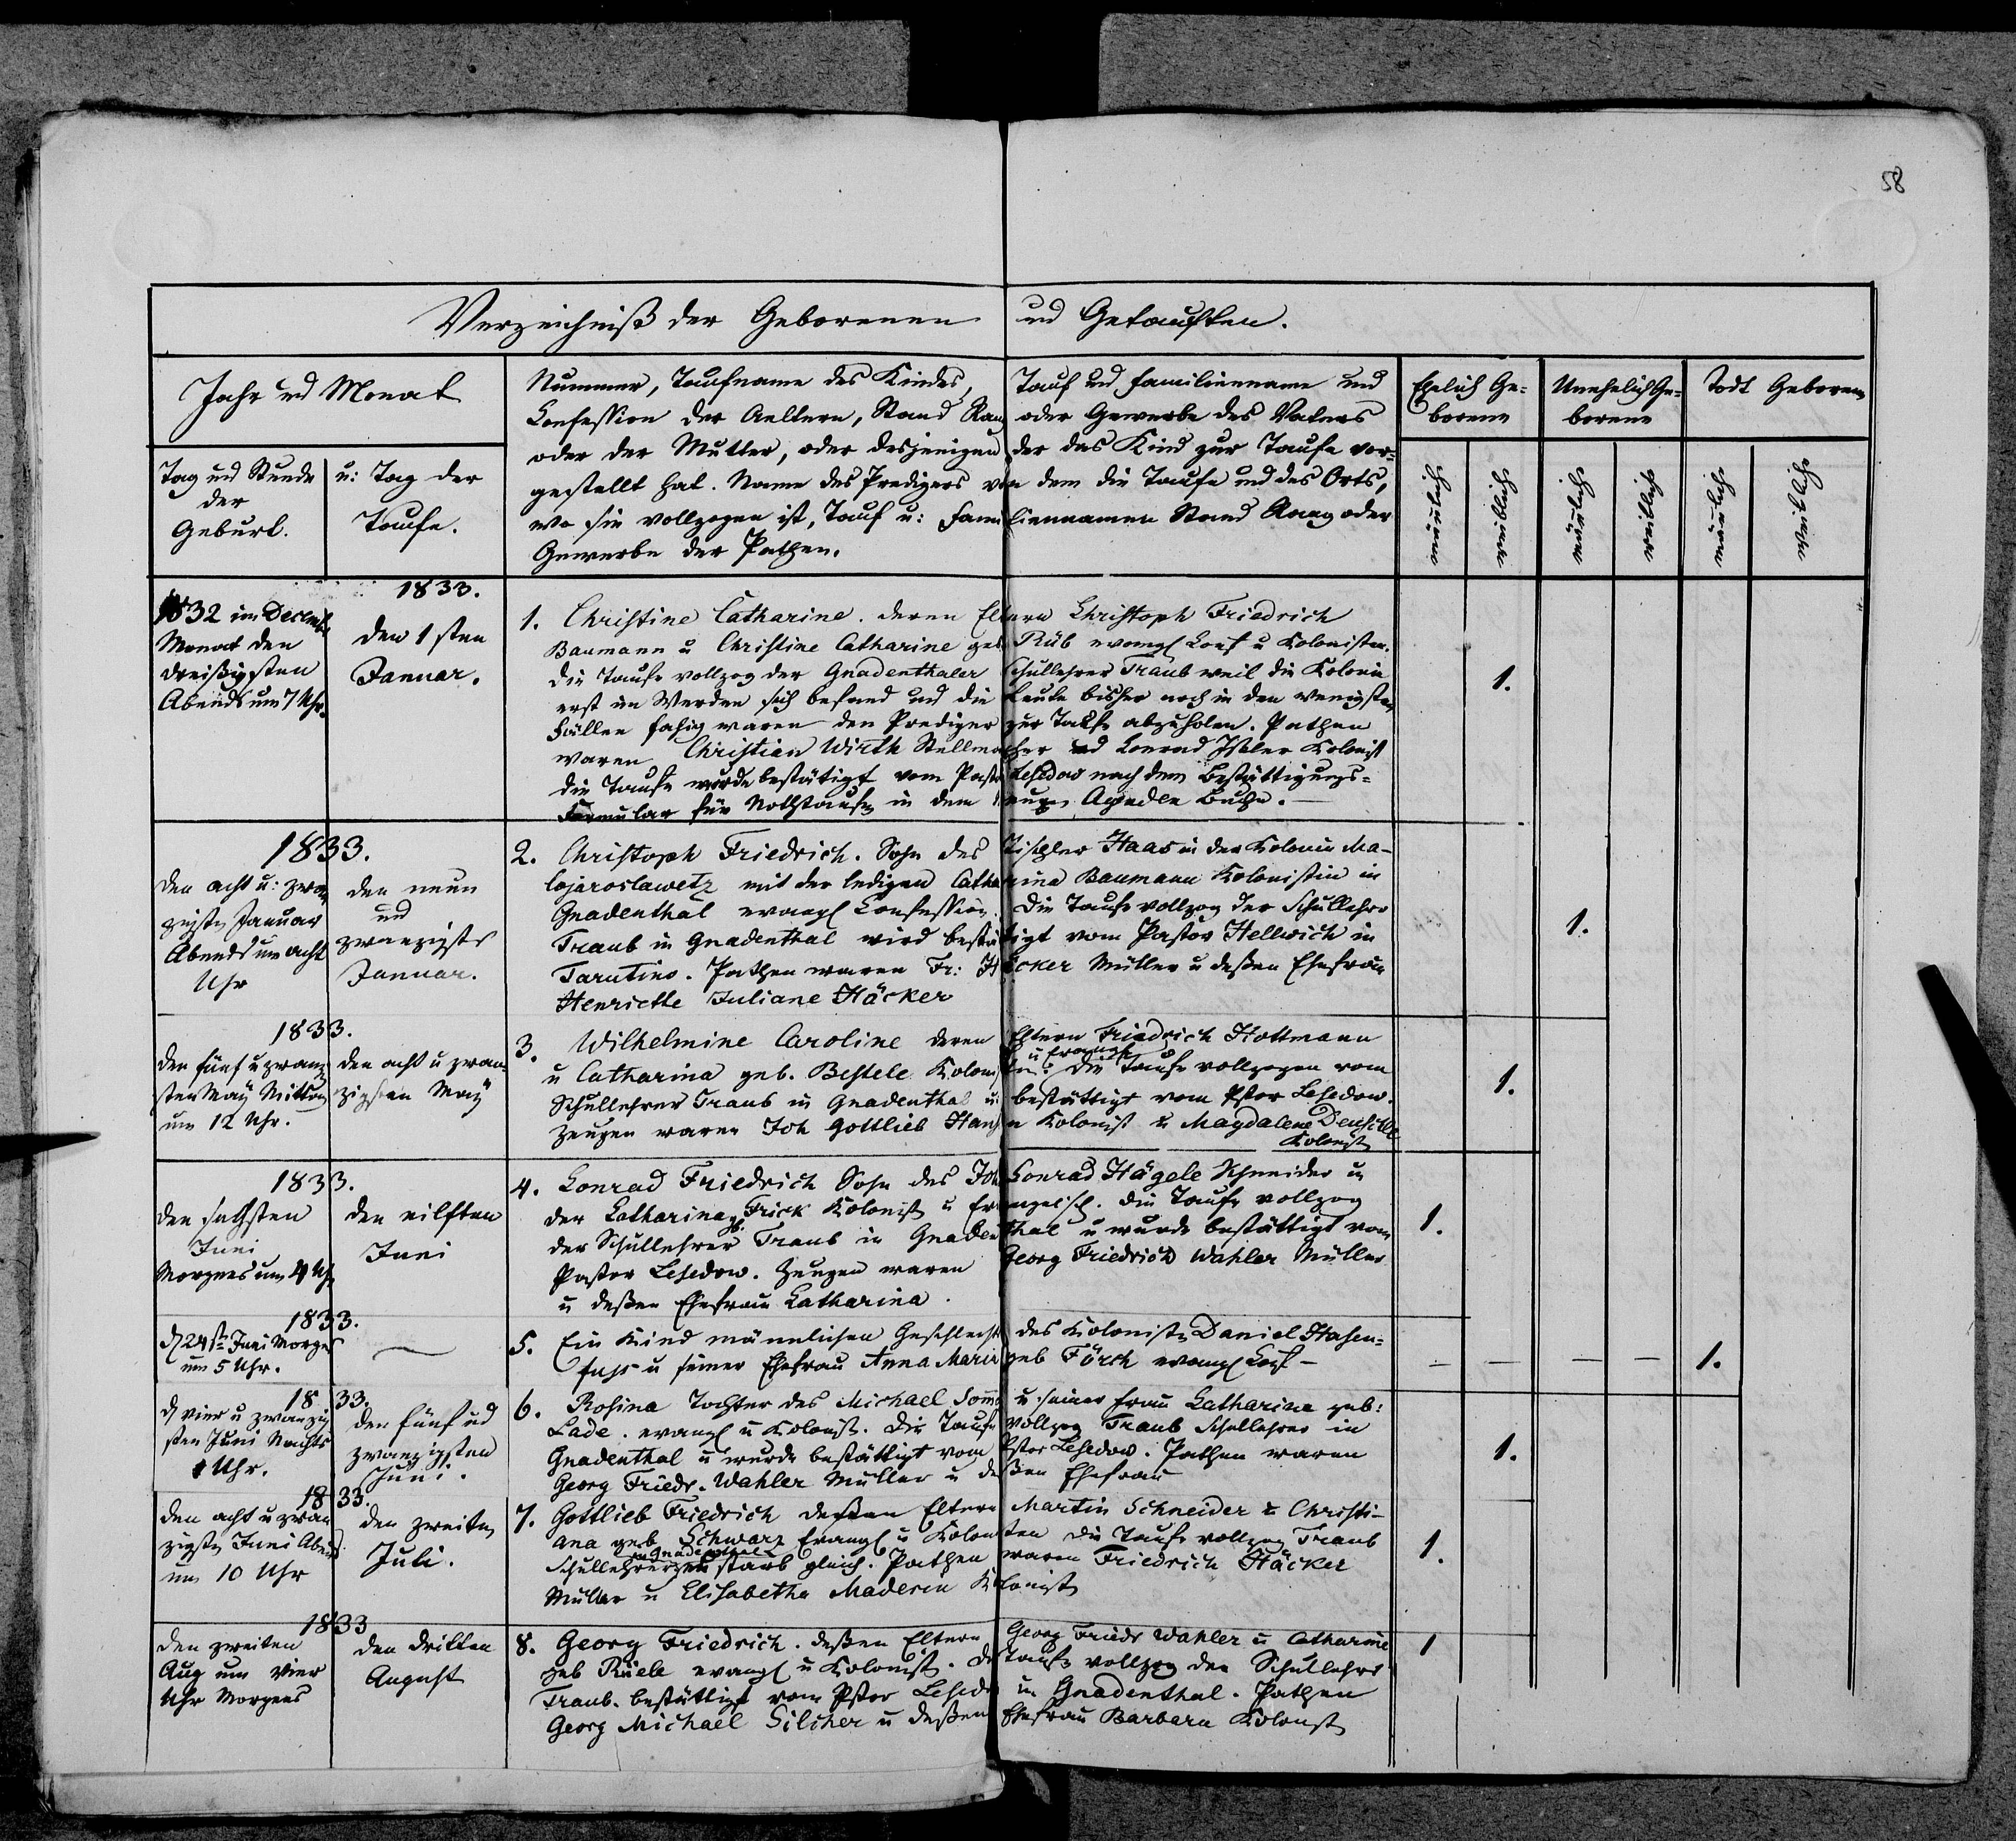 58
Verzeichniß der Geborenen und Getauften.
Jahr und Monat
Tag und Stunde
der
Geburt.
u: Tag der
Taufe.
Nummer, Taufname des Kindes, Tauf und Familienname und
Confession der Aeltern, Stand Rang oder Gewerbe des Vaters
oder der Mutter, oder desjenigen der das Kind zur Taufe vor-
gestellt hat. Name des Predigers von dem die Taufe und des Orts,
wo sie vollzogen ist, Tauf u: Familiennamen Stand Rang oder
Gewerbe der Pathen.
Ehelich Ge-
borene
Unehelich Ge-
borene
Todt Geborene
mänlich
weiblich
mänlich
weiblich
mänlich
weiblich
1832 im Decemb
Monat den
dreißigsten
Abends um 7 Uhr.
1833.
den 1sten
Januar.
1. Christine Catharine. deren Eltern Christoph Friedrich
Baumann u Christine Catharine geb. Rüb evangl Conf u Kolonisten.
die Taufe vollzog der Gnadenthaler Schullehrer Traub weil die Kolonie
erst im Werden sich befand und die Leute bisher noch in den wenigsten
Fällen fähig waren den Prediger zur Taufe abzuholen. Pathen
waren Christian Wirth Stellmacher und Conrad Ißler Kolonist
die Taufe wurde bestätigt vom Pastor Lesedow nach dem Bestättigungs-
Formular für Nothtaufen in dem neuen Agende Buche.
1.
1833.
den acht u: zwan
zigsten Januar
Abends um acht
Uhr
den neun
und
zwanzigste
Januar.
2. Christoph Friedrich. Sohn des Tischler Haas in der Kolonie Ma-
lojaroslawetz mit der ledigen Catharina Baumann Kolonistin in
Gnadenthal evangl Confession. Die Taufe vollzog der Schullehrer
Traub in Gnadenthal wird bestätigt vom Pastor Hellwich in
Tarutino. Pathen waren Fr: Häcker Müller u deßen Ehefrau
Henriette Juliane Häcker
1.
1833.
den fünf u zwanzig
sten May Mittag
um 12 Uhr.
den acht u zwan
zigsten May
3. Wilhelmine Caroline deren Eltern Friedrich Hottmann
u Catharina geb. Bestele Kolonisten u Evangl. Die Taufe vollzogen vom
Schullehrer Traub in Gnadenthal u: bestättigt vom Pstor Lesedow.
Zeugen waren Joh Gottlieb Kolonist u Magdalene
Kolonist
1.
1833.
den sechsten
Juni
Morgens um 4 Uhr
den eilften
Juni
4. Conrad Friedrich Sohn des Joh Conrad Hägele Schneider u
der Catharina gb. Frick Kolonist u Evangelisch. die Taufe vollzog
der Schullehrer Traub in Gnadenthal u wurde bestättigt vom
Pastor Lesedow. Zeugen waren Georg Friedrich Wahler Müller
u deßen Ehefrau Catharina.
1.
1833.
d 24ste Juni Morges
um 5 Uhr.
5. Ein Kind männlichen Geschlechts des Koloniste Daniel Hasen-
fuß u seiner Ehefrau Anna Maria geb Förch evangl Conf -
1.
1833.
d vier u zwanzig
sten Juni Nachts
1 Uhr.
den fünf und
zwanzigsten
Juni.
6. Rosina Tochter des Michael u seiner Frau Catharine geb:
Lade. evangl u Kolonist. Die Taufe vollzog Traub Schullehrer in
Gnadenthal u wurde bestättigt vom Pstor Lesedow. Pathen waren
Georg Friedr. Wahler Müller u deßen Ehefrau
1.
1833.
den acht u zwan
zigsten Juni Abends
um 10 Uhr
den zweiten
Juli.
7. Gottlieb Friedrich deßen Eltern Martin Schneider u Christi-
ana geb Schwarz Evangl u Kolonisten die Taufe vollzog Traub
Schullehrer zu Gnadenthal starb gleich. Pathen waren Friedrich Häcker
Müller u Elisabetha Maderin Kolonist
1.
1833
den zweiten
Aug um Vier
Uhr Morgens
den dritten
August
8. Georg Friedrich. deßen Eltern Georg Friedr Wahler u Catharine
geb Rüele evangl u Kolonist. Die Taufe vollzog der Schullehrer
Traub. bestättigt vom Pstor Lesedow in Gnadenthal. Pathen
Georg Michael Silcher u deßen Ehefrau Barbara Kolonist
1